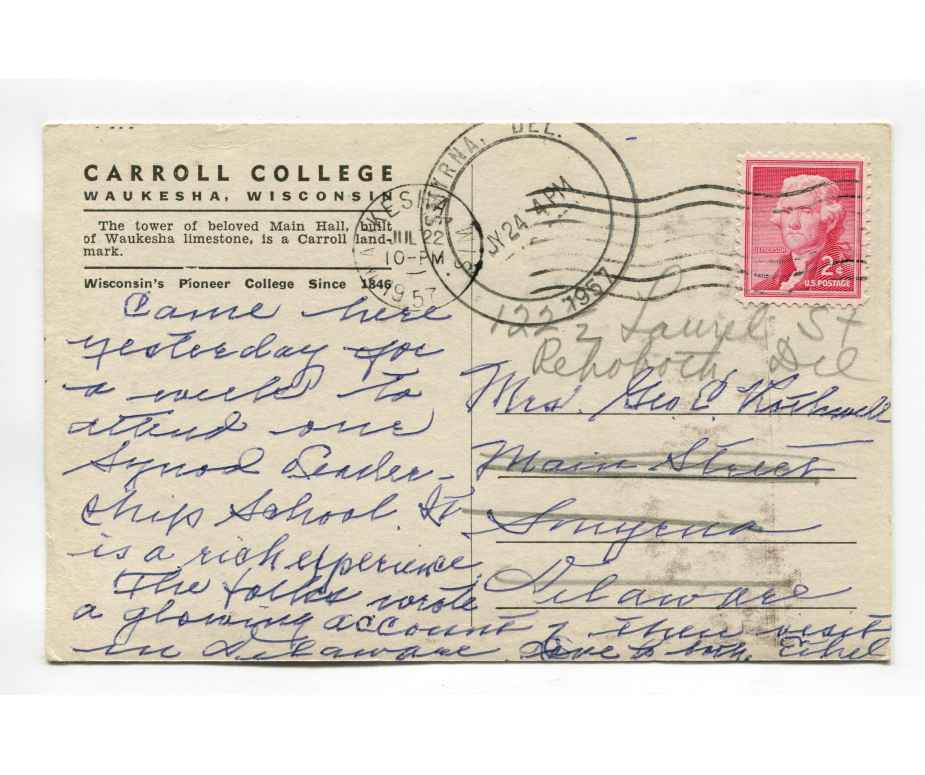 CARROLL COLLEGE
WAUKESHA, WISCONSIN
The tower of beloved Main Hall, built
of Waukesha limestone, is a Carroll land-
mark.
Wisconsin's Pioneer College Since 1846
Came here
yesterday for
a week to
attend our
Synod Leader-
ship School. It
is a rich experience.
The folks wrote
a glowing account of their visit
in Delaware Love to both, Ethel
WAUKESHA
WIS.
JUL 22
10-PM
1957
SMYRNA, DEL.
JY 24 4 PM
1957
JEFFERSON
2¢
U.S. POSTAGE
122 Laurel St
Rehoboth, Del
Mrs. Geo E. Rothwell
Main Street
Smyrna
Delaware